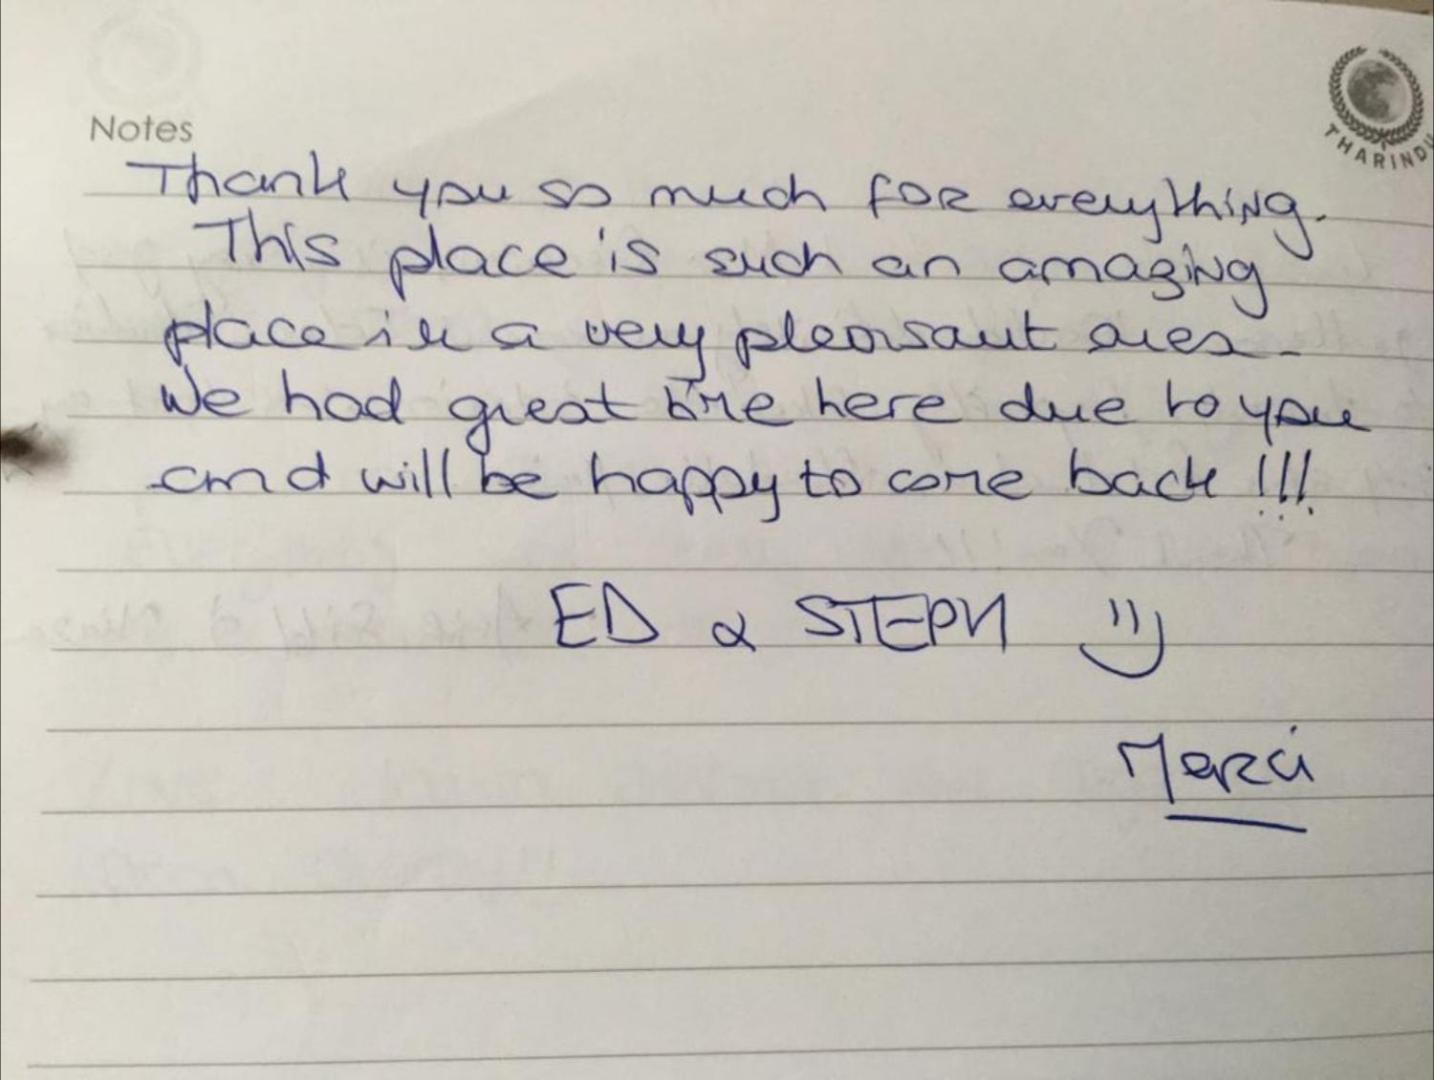 Notes
THARINDU
Thank you so much for everything.
This place is such an amazing
place in a very pleasant area.
We had great time here due to you
and will be happy to come back !!!
ED & STEPH :)
Merci